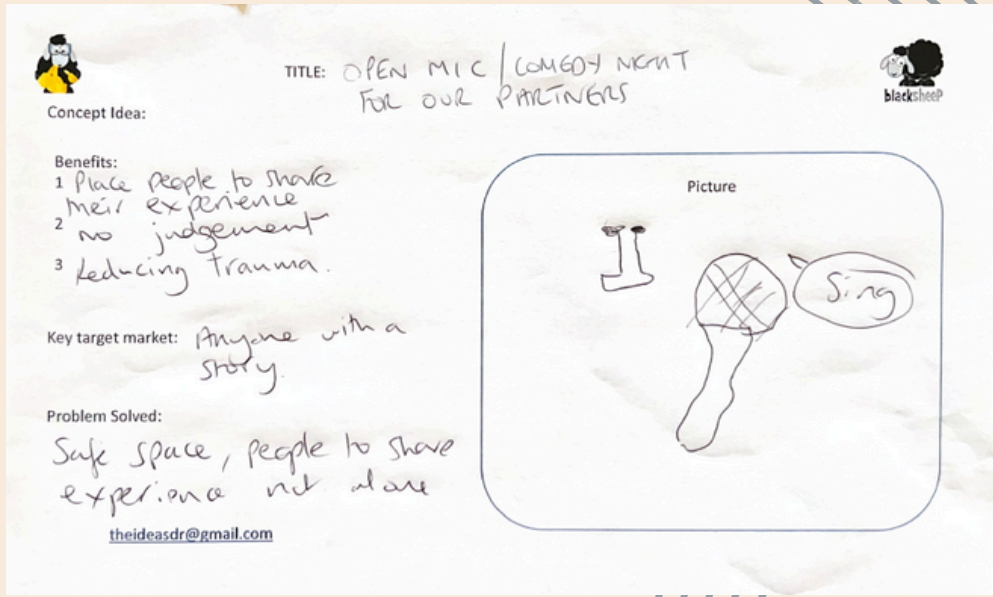 TITLE: OPEN MIC / COMEDY NIGHT
FOR OUR PARTNERS
blacksheeP
Concept Idea:
Benefits:
1 Place people to share
their experience
2 no judgement
3 Reducing trauma.
Key target market: Anyone with a
story.
Problem Solved:
Safe space, people to share
experience not alone
theideasdr@gmail.com
Picture
I
Sing